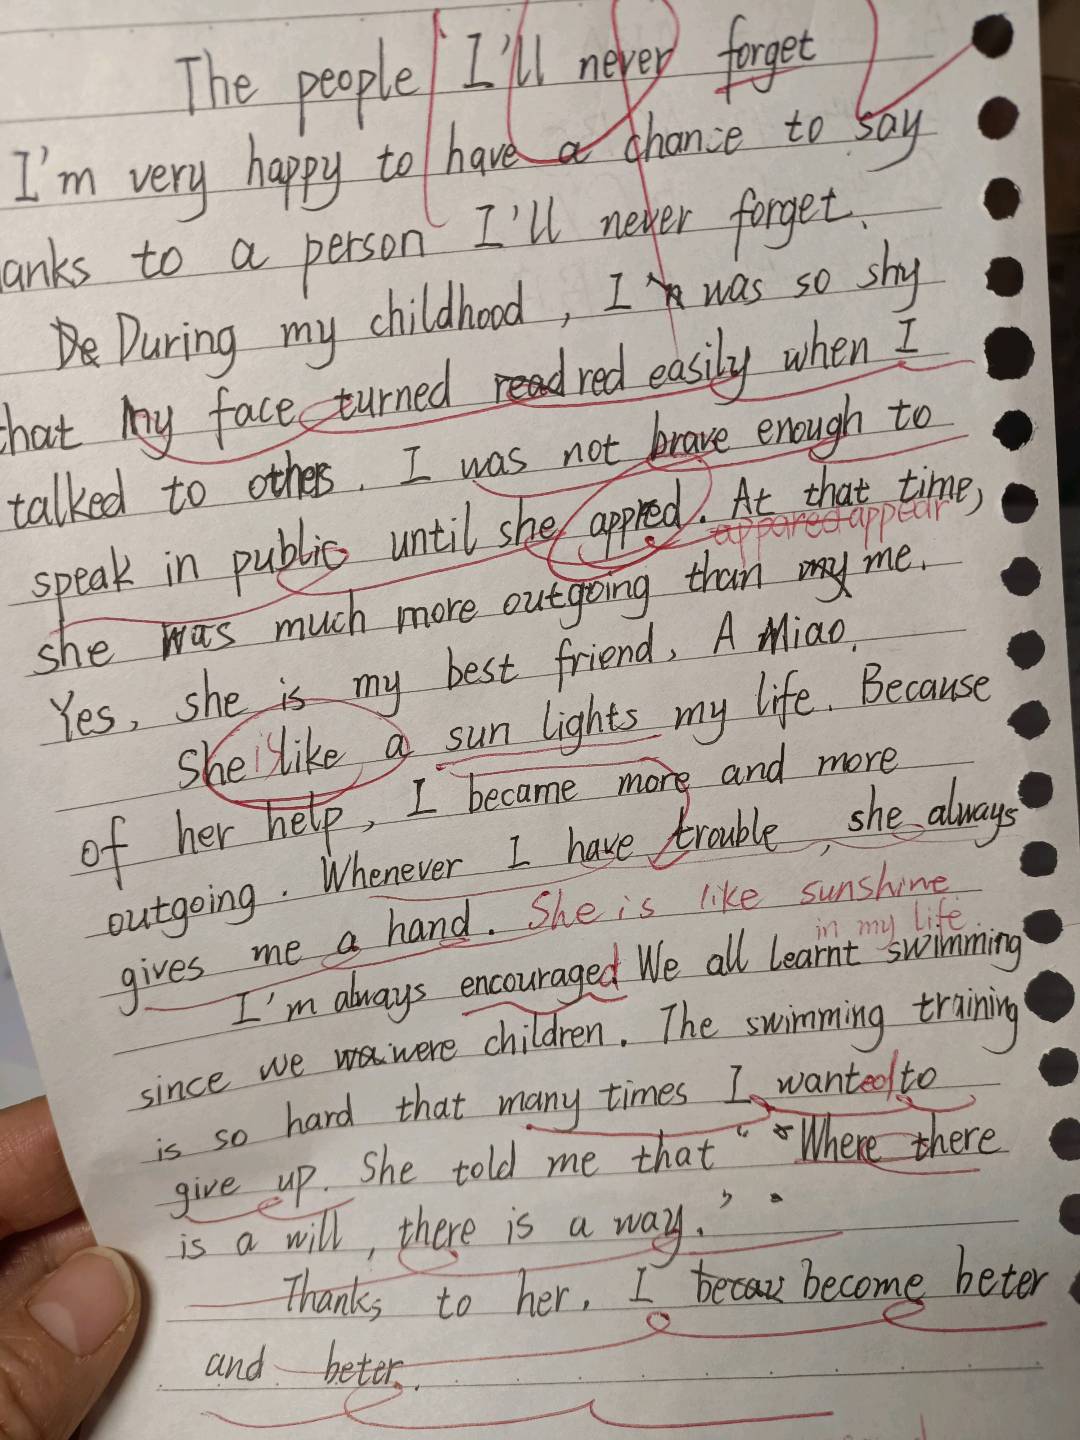 The people I'll never forget
I'm very happy to have a chance to say
anks to a person I'll never forget.
During my childhood, I was so shy
that my face turned red easily when I
talked to others. I was not brave enough to
speak in public until she appred. At that time,
appared appear
she was much more outgoing than me.
Yes, she is my best friend, A Miao.
She is like a sun lights my life. Because
of her help, I became more and more
outgoing. Whenever I have trouble, she always
gives me a hand. She is like sunshine
in my life.
I'm always encouraged We all learnt swimming
since we were children. The swimming training
is so hard that many times I wanted to
give up. She told me that "Where there
is a will, there is a way.".
Thanks to her. I become beter
and beter.